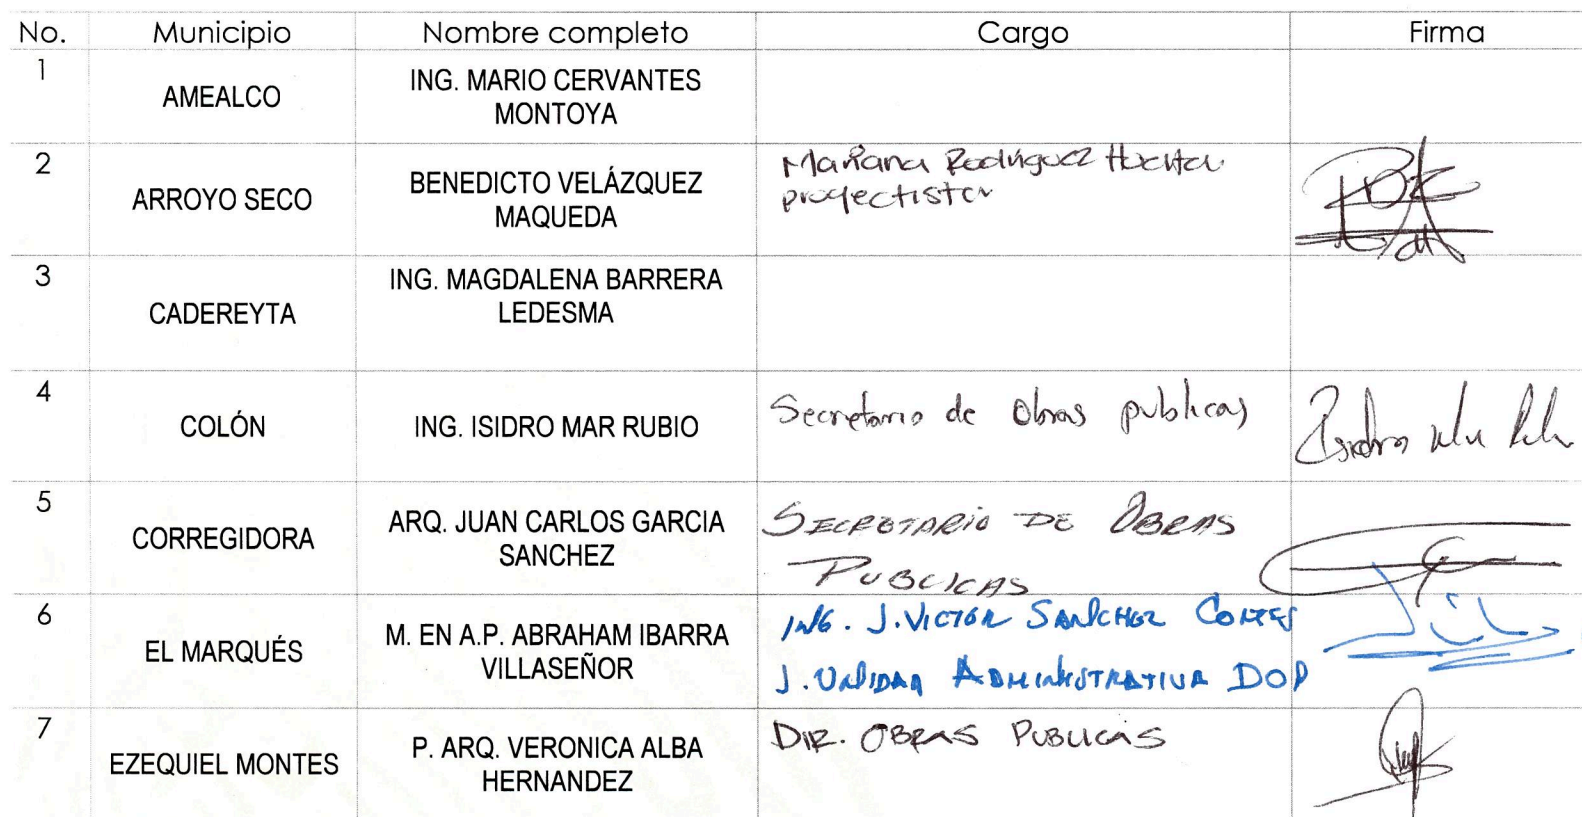 No. Municipio Nombre completo Cargo Firma
1 AMEALCO ING. MARIO CERVANTES
MONTOYA
2 ARROYO SECO BENEDICTO VELÁZQUEZ
MAQUEDA
Mariana Rodríguez Huerta
proyectista
3 CADEREYTA ING. MAGDALENA BARRERA
LEDESMA
4 COLÓN ING. ISIDRO MAR RUBIO Secretario de Obras publicas
Isidro Mar
5 CORREGIDORA ARQ. JUAN CARLOS GARCIA
SANCHEZ
SECRETARIO DE OBRAS
PUBLICAS
6 EL MARQUÉS M. EN A.P. ABRAHAM IBARRA
VILLASEÑOR
ING. J. VICTOR SANCHEZ CORTES
J. UNIDAD ADMINISTRATIVA DOP
7 EZEQUIEL MONTES P. ARQ. VERONICA ALBA
HERNANDEZ
DIR. OBRAS PUBLICAS